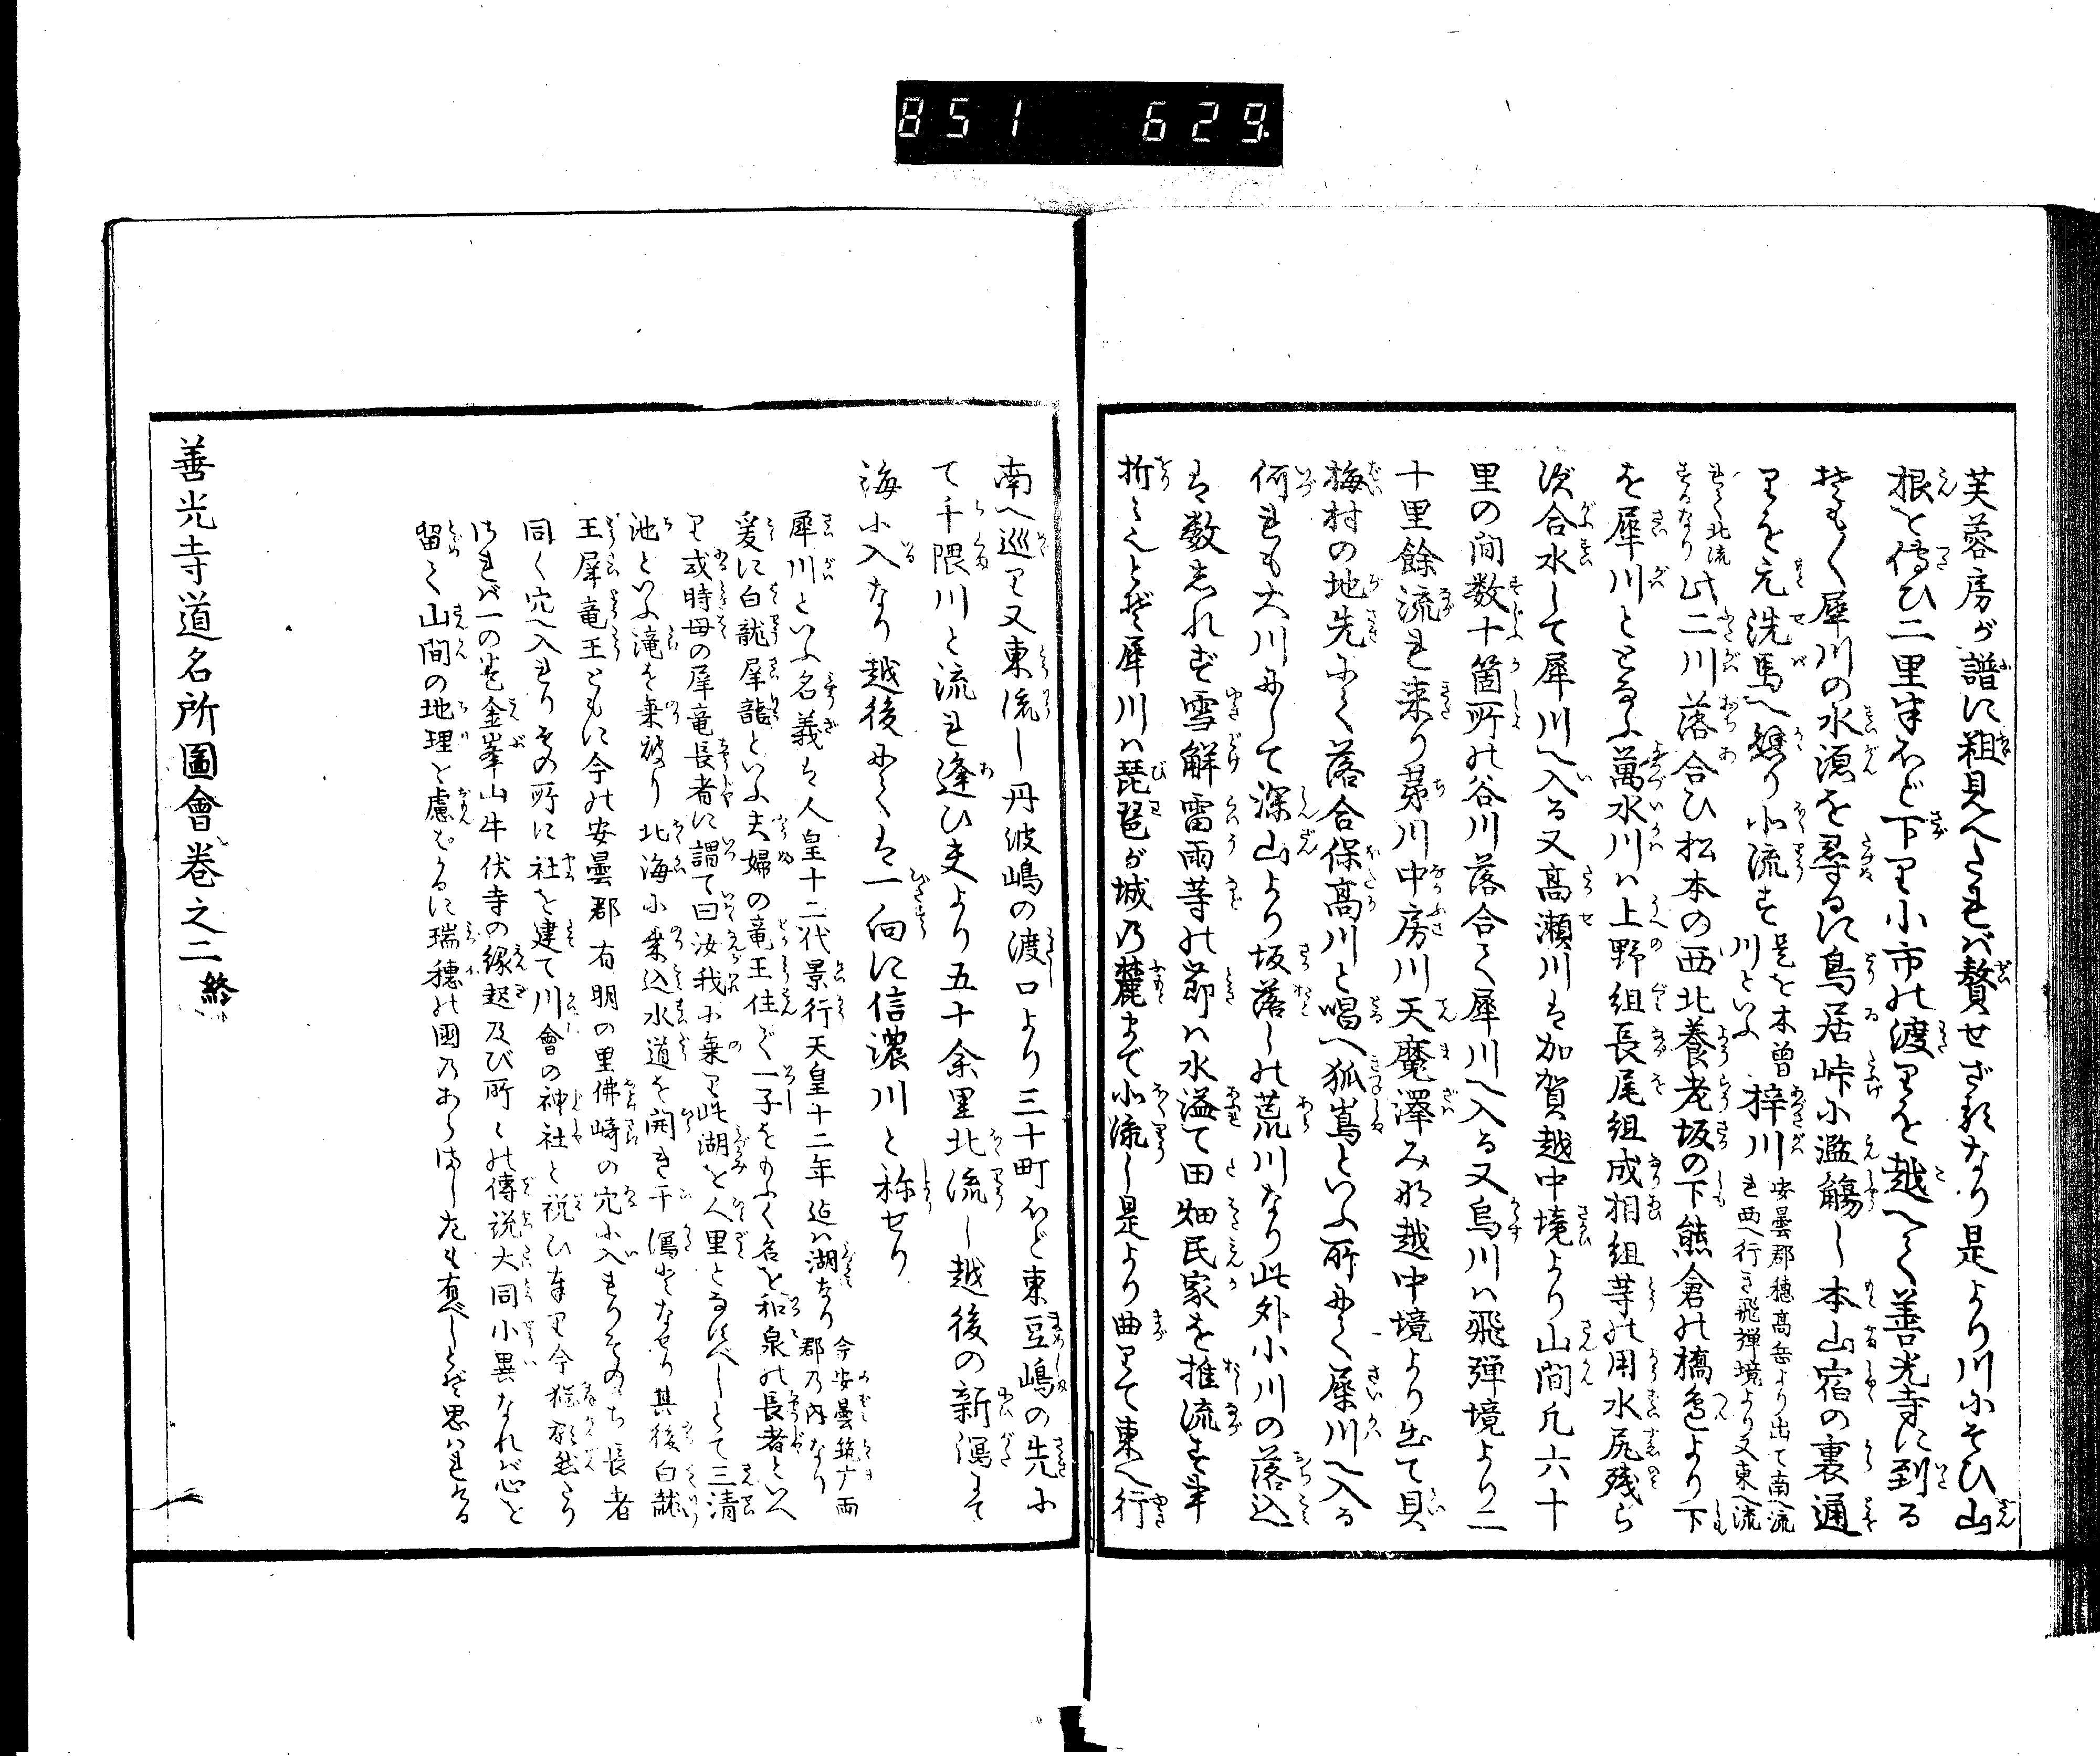 851 629
芙蓉房が譜に粗見へたれば贅せざるなり是より川にそひ山
根を傳ひ二里半ほど下り小市の渡りを越へて善光寺に到る
そも〳〵犀川の水源を尋るに鳥居峠に濫觴し本山宿の裏通
りを元洗馬へ繞り北流す是を木曽川といふ梓川安曇郡穂高岳より出て南へ流れ西へ行き飛騨境より又東へ流
れて北流するなり此二川落合ひ松本の西北養老坂の下熊倉の橋邊より下
を犀川ととなふ萬水川ハ上野組長尾組成相組等の用水尻残ら
ず合水して犀川へ入る又高瀬川は加賀越中境より山間凡六十
里の間数十箇所の谷川落合て犀川へ入る又烏川ハ飛弾境より二
十里餘流れ来り茅川中房川天魔澤みな越中境より出て貝
梅村の地先にて落合保高川と唱へ狐嶌といふ所にて犀川へ入る
何れも大川にして深山より坂落しの荒川なり此外小川の落込
は数しれず雪解雷雨等の節ハ水溢て田畑民家を推流す事
折々とぞ犀川ハ琵琶が城乃麓まで北流し是より曲りて東へ行
南へ巡り又東流し丹波嶋の渡口より三十町ほど東豆嶋の先に
て千隈川と流れ逢ひ夫より五十余里北流し越後の新潟にて
海に入なり越後にては一向に信濃川と称せり
犀川といふ名義は人皇十二代景行天皇十二年迄ハ湖なり今安曇筑广両郡乃内なり
爰に白龍犀龍といふ夫婦の竜王住て一子をうく名を和泉の長者といへ
り或時母の犀竜長者に謂て曰汝我に乗り此湖を人里となすべしとて三清
池といふ滝を乗破り北海に乗込水道を開き干潟となせり其後白龍
王犀竜王ともに今の安曇郡有明の里佛崎の穴に入れりそのゝち長者
同く穴へ入れりその所に社を建て川會の神社と祝ひ奉り今猶然り
されば一の金峯山牛伏寺の縁起及び所々の傳説大同小異なれば心を
留て山間の地理を慮ばかるに瑞穂の國乃あらましたも有べしとぞ思ハれける
善光寺道名所圖會巻之二終